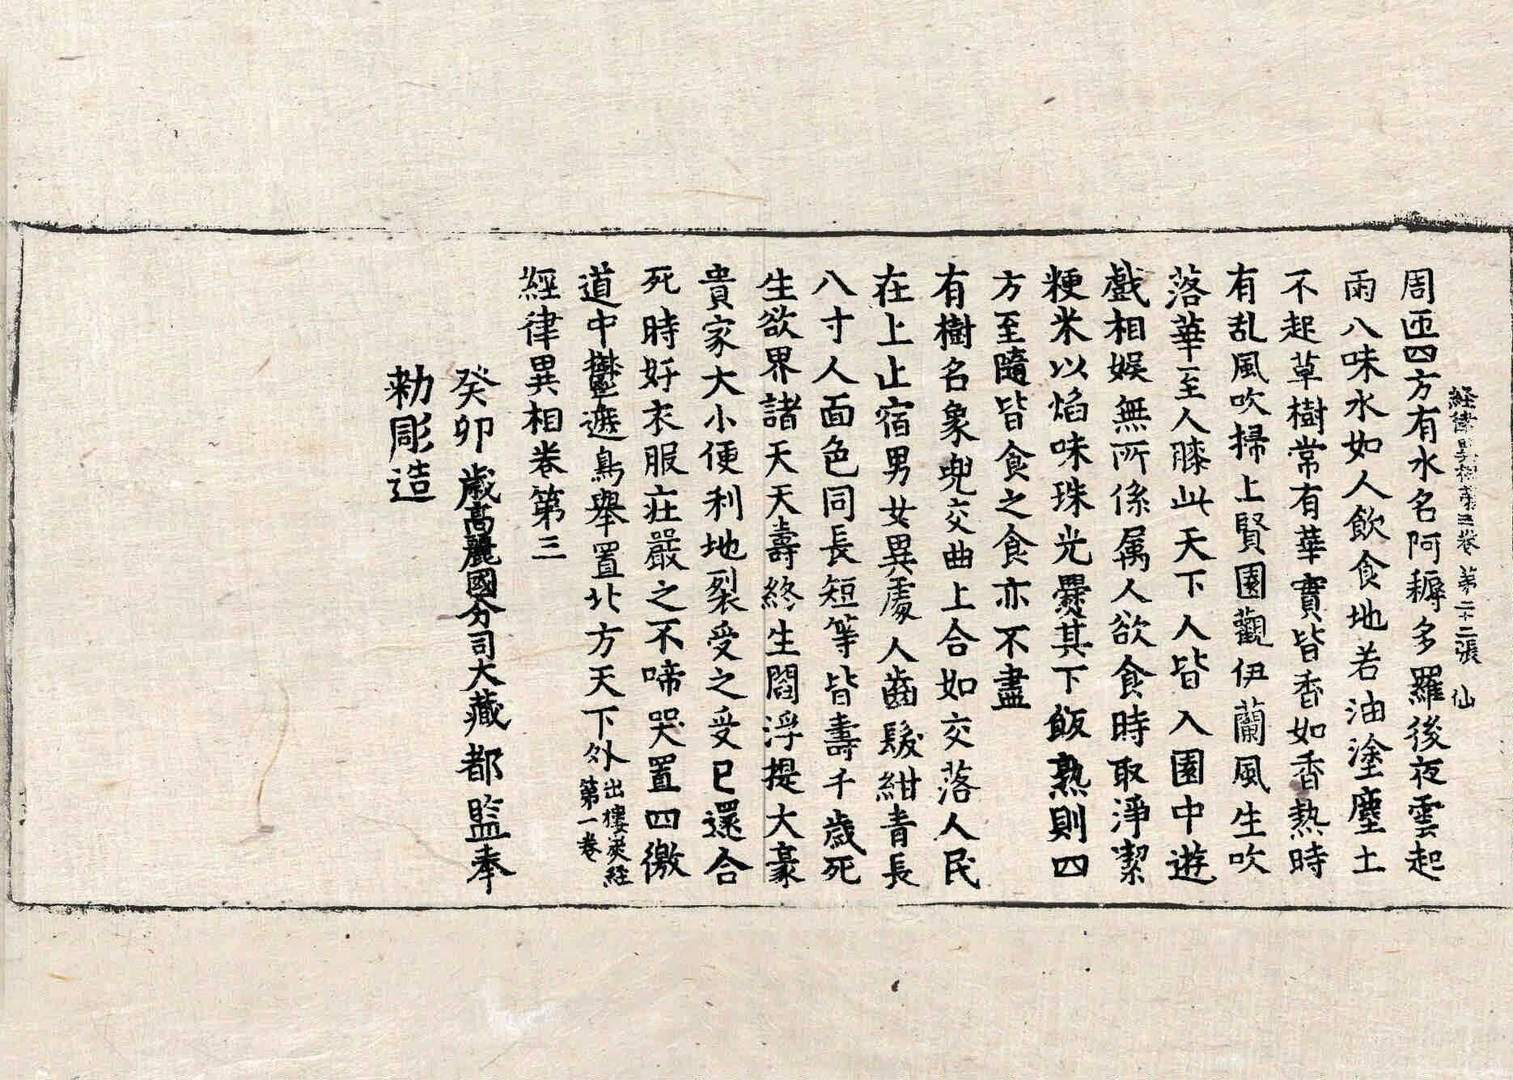 経律異相第三卷 第二十二張 仙
周匝四方有水名阿耨多羅後夜雲起
雨八味水如人飲食地若油塗塵土
不起草樹常有華實皆香如香熱時
有乱風吹掃上賢園觀伊蘭風生吹
落華至人膝此天下人皆入園中遊
戲相娛無所係属人欲食時取淨潔
粳米以焰味珠光爨其下飯熟則四
方至隨皆食之食亦不盡
有樹名象兜交曲上合如交落人民
在上止宿男女異處人齒髮紺青長
八寸人面色同長短等皆壽千歲死
生欲界諸天天壽終生閻浮提大豪
貴家大小便利地裂受之受已還合
死時好衣服庄嚴之不啼哭置四徼
道中鬱遮鳥舉置北方天下外出樓炭経第一卷
經律異相卷第三
癸卯歲高麗國分司大藏都監奉
勑彫造